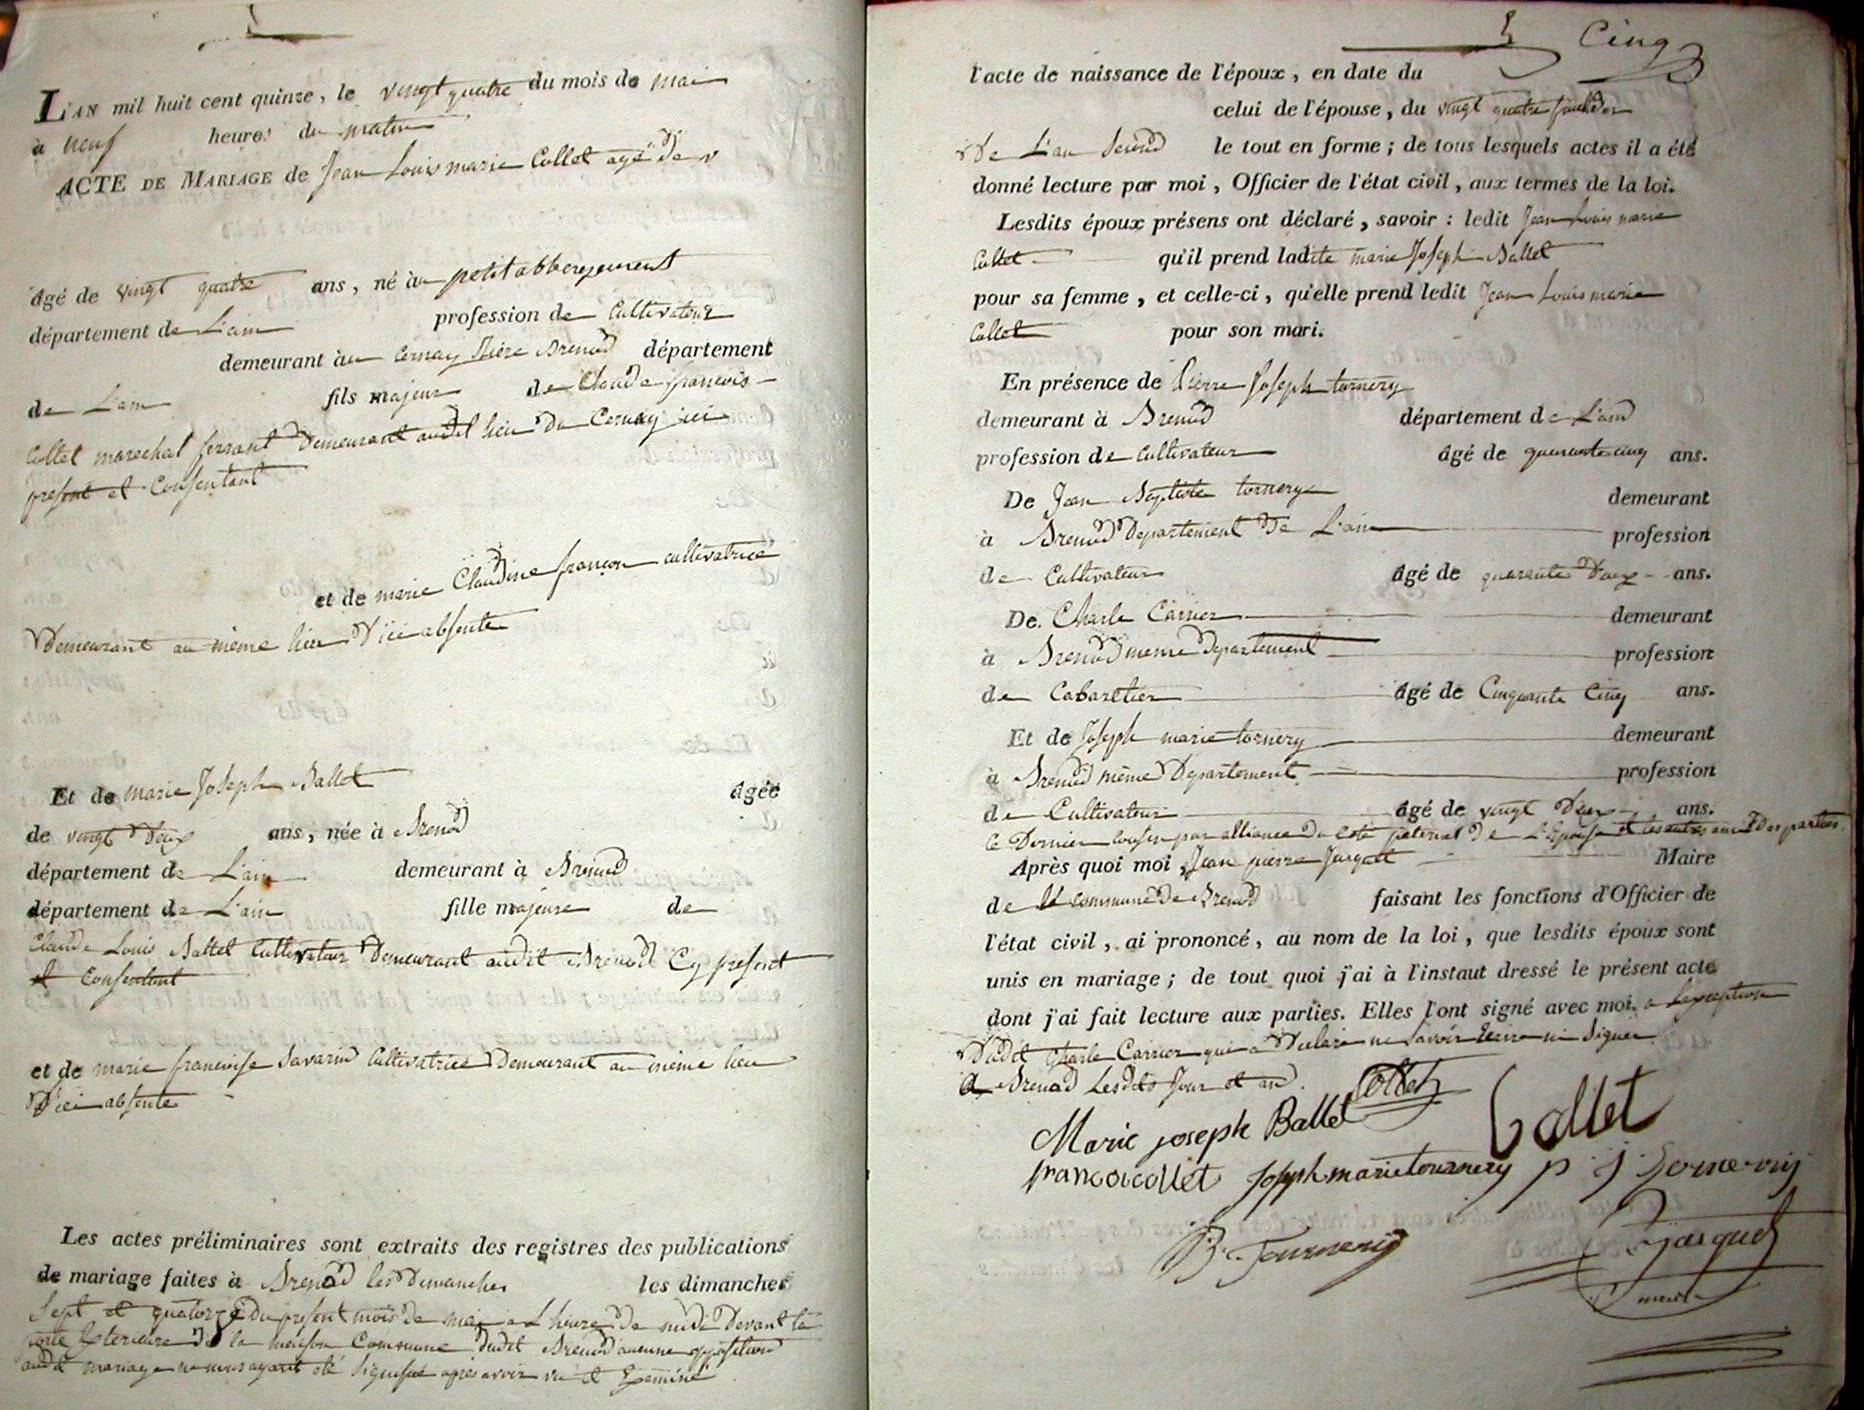 L'AN mil huit cent quinze, le vingt quatre du mois de mai
à neuf heures du matin
ACTE DE MARIAGE de Jean Louis marie Collet agé de
âgé de vingt quatre ans, né au petit abbergement
département de L'ain profession de Cultivateur
demeurant au Cernay Brenod département
de L'ain fils majeur de Claude francois
Collet marechal ferrant Demeurant audit lieu du Cernay ici
present et Consentant
et de marie Claudine françon cultivatrice
Demeurant au même lieu D'ici absente
Et de marie Joseph Ballet âgée
de vingt Deux ans, née à Brenod
département de L'ain demeurant à Brenod
département de L'ain fille majeure de
Claude Louis Ballet Cultivateur Demeurant audit Brenod Cy present
et Consentant
et de marie francoise Savarin Cultivatrice Demeurant au même lieu
D'ici absente
Les actes préliminaires sont extraits des registres des publications
de mariage faites à Brenod les Dimanches les dimanches
Sept et quatorze du present mois de mai a L'heure de midi Devant la
porte Exterieure de la maison Commune dudit Brenod aucune opposition
audit mariage ne nous ayant été Signifiée après avoir vu et Examiné
5 Cinq
l'acte de naissance de l'époux, en date du
celui de l'épouse, du vingt quatre
De L'an Second le tout en forme ; de tous lesquels actes il a été
donné lecture par moi, Officier de l'état civil, aux termes de la loi.
Lesdits époux présens ont déclaré, savoir : ledit Jean Louis marie
Collet qu'il prend ladite marie Joseph Ballet
pour sa femme, et celle-ci, qu'elle prend ledit Jean Louis marie
Collet pour son mari.
En présence de Pierre Joseph tornery
demeurant à Brenod département de L'ain
profession de Cultivateur âgé de quarente cinq ans.
De Jean Baptiste tornery demeurant
à Brenod Departement De L'ain profession
de Cultivateur âgé de quarente Deux ans.
De Charle Carrier demeurant
à Brenod meme Departement profession
de Cabaretier âgé de Cinquante Cinq ans.
Et de Joseph marie tornery demeurant
à Brenod même Departement profession
de Cultivateur âgé de vingt Deux ans.
ce Dernier Cousin par alliance du coté paternel de L'Epouse et les autres amis des parties
Après quoi moi, Jean pierre Jarquet Maire
de la commune de Brenod faisant les fonctions d'Officier de
l'état civil, ai prononcé, au nom de la loi, que lesdits époux sont
unis en mariage ; de tout quoi j'ai à l'instant dressé le présent acte
dont j'ai fait lecture aux parties. Elles l'ont signé avec moi. a L'exception
Dudit Charle Carrier qui a Declaré ne Savoir Ecrire ni Signer
A Brenod Lesdits Jour et an.
Collet
Marie joseph Ballet Ballet
francoicollet Joseph marie tournery p j Tornery
B te Tournery Jarquet
maire